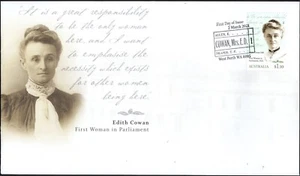 It is a great responsibility
to be the only woman
here, and I want
to emphasise the
necessity which exists
for other women
being here.
Edith Cowan
First Woman in Parliament
First Day of Issue
2 March 2021
COWAN, Mrs. E. D. 1
West Perth WA 6005
AUSTRALIA
$1.10